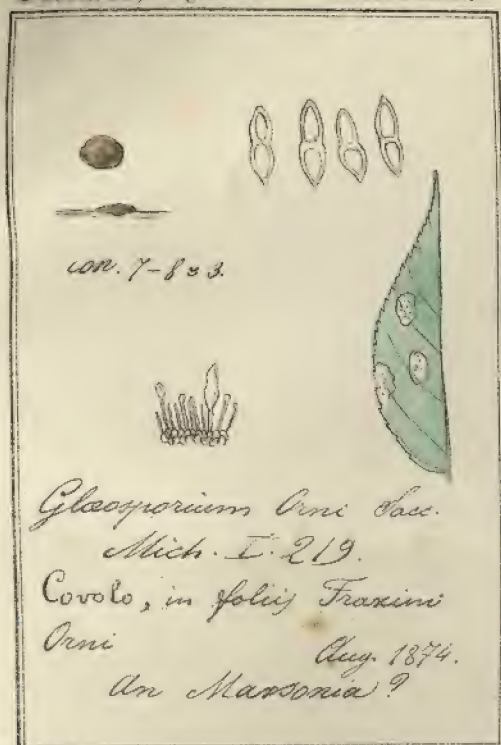 con. 7-8 ≈ 3.
Glœosporium Orni Sacc.
Mich. I. 219.
Covolo, in foliis Fraxini
Orni
Aug. 1874.
An Marsonia?